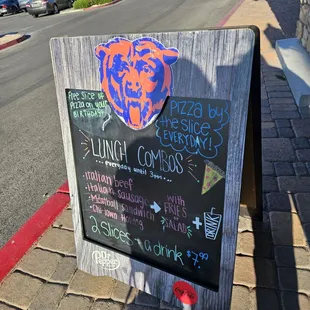 Free slice of
Pizza on your
BIRTHDAY!
Pizza by
the slice
EVERYDAY!
LUNCH COMBOS
everyday until 3pm
italian beef
italian sausage
meatball sandwich
with
FRIES
OR
SALAD
+
DRINK
2 slices + a drink $7.99